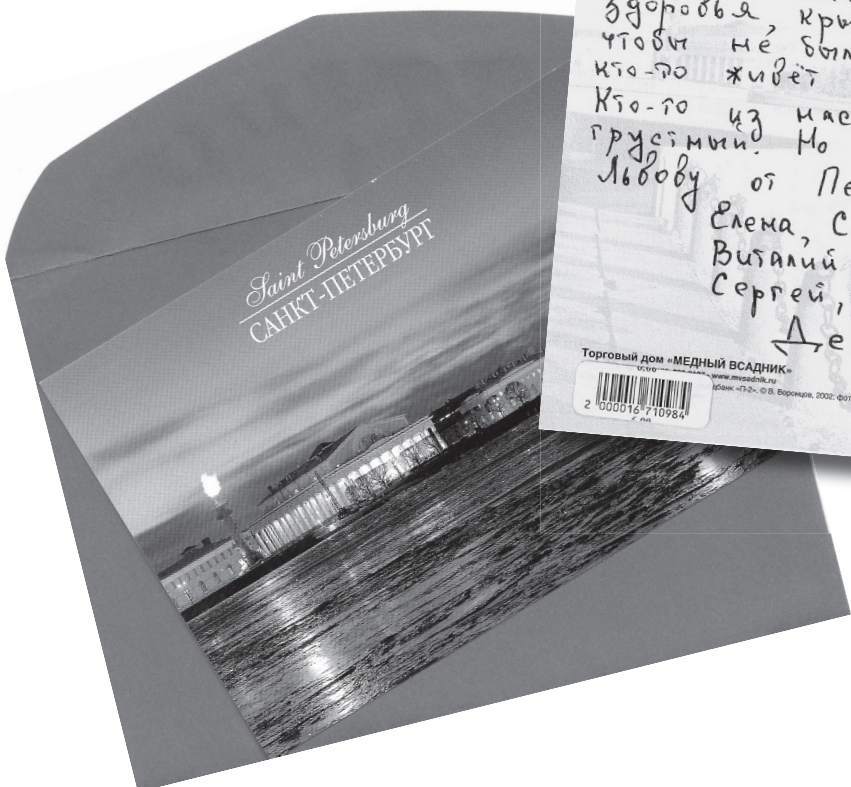 Saint Petersburg
САНКТ-ПЕТЕРБУРГ
здоровья, кры
чтобы не был
кто-то живёт
Кто-то из нас
грустный. Но
Львову от Пе
Елена, С
Виталий
Сергей,
Де
Торговый дом «МЕДНЫЙ ВСАДНИК»
www.mvsadnik.ru
дбанк «П-2». © В. Воронцов, 2002. фот
2 000016 710984